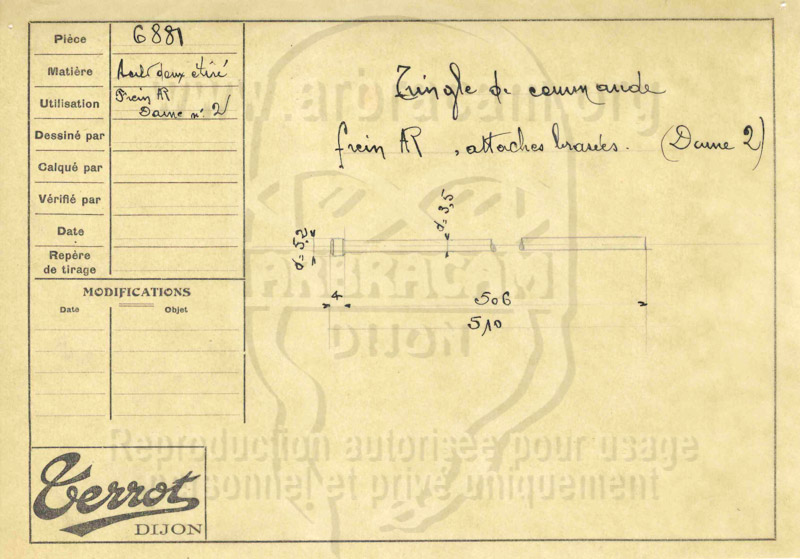 Pièce 6881
Matière Acier doux étiré
Utilisation Frein AR
Dame n° 2
Dessiné par
Calqué par
Vérifié par
Date
Repère
de tirage
MODIFICATIONS
Date Objet
Terrot
DIJON
Tringle de commande
frein AR, attaches brasées. (Dame 2)
d=5,2
d=3,5
4 506
510
www.arbracam.org
ARBRACAM
DIJON
Reproduction autorisée pour usage
personnel et privé uniquement